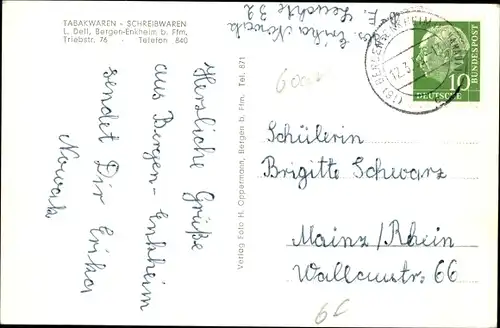 TABAKWAREN - SCHREIBWAREN
L. Dell, Bergen-Enkheim b. Ffm.
Triebstr. 76 - Telefon 840
Herzliche Grüße
aus Bergen-Enkheim
sendet Dir Erika
Nowak
Verlag Foto H. Oppermann, Bergen b. Ffm., Tel. 871
Erika Nowak
32
(16) BERGEN-ENKHEIM
17.3.
10
DEUTSCHE
BUNDESPOST
Schülerin
Brigitte Schwarz
Mainz/Rhein
Wallaustr. 66